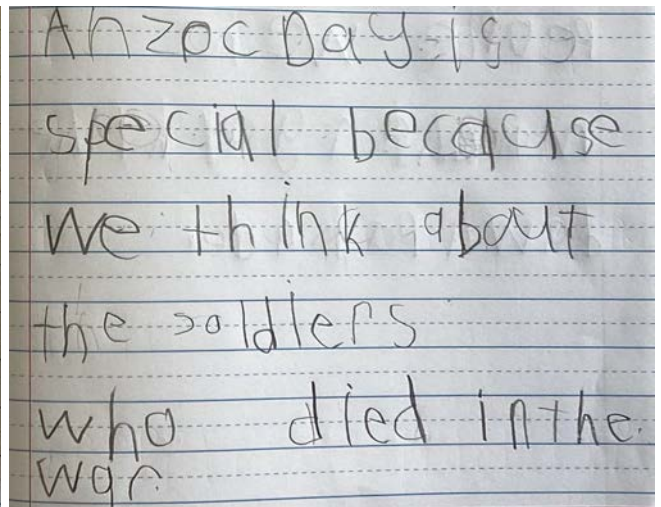 Anzac Day is
special because
we think about
the soldiers
who died in the
war.